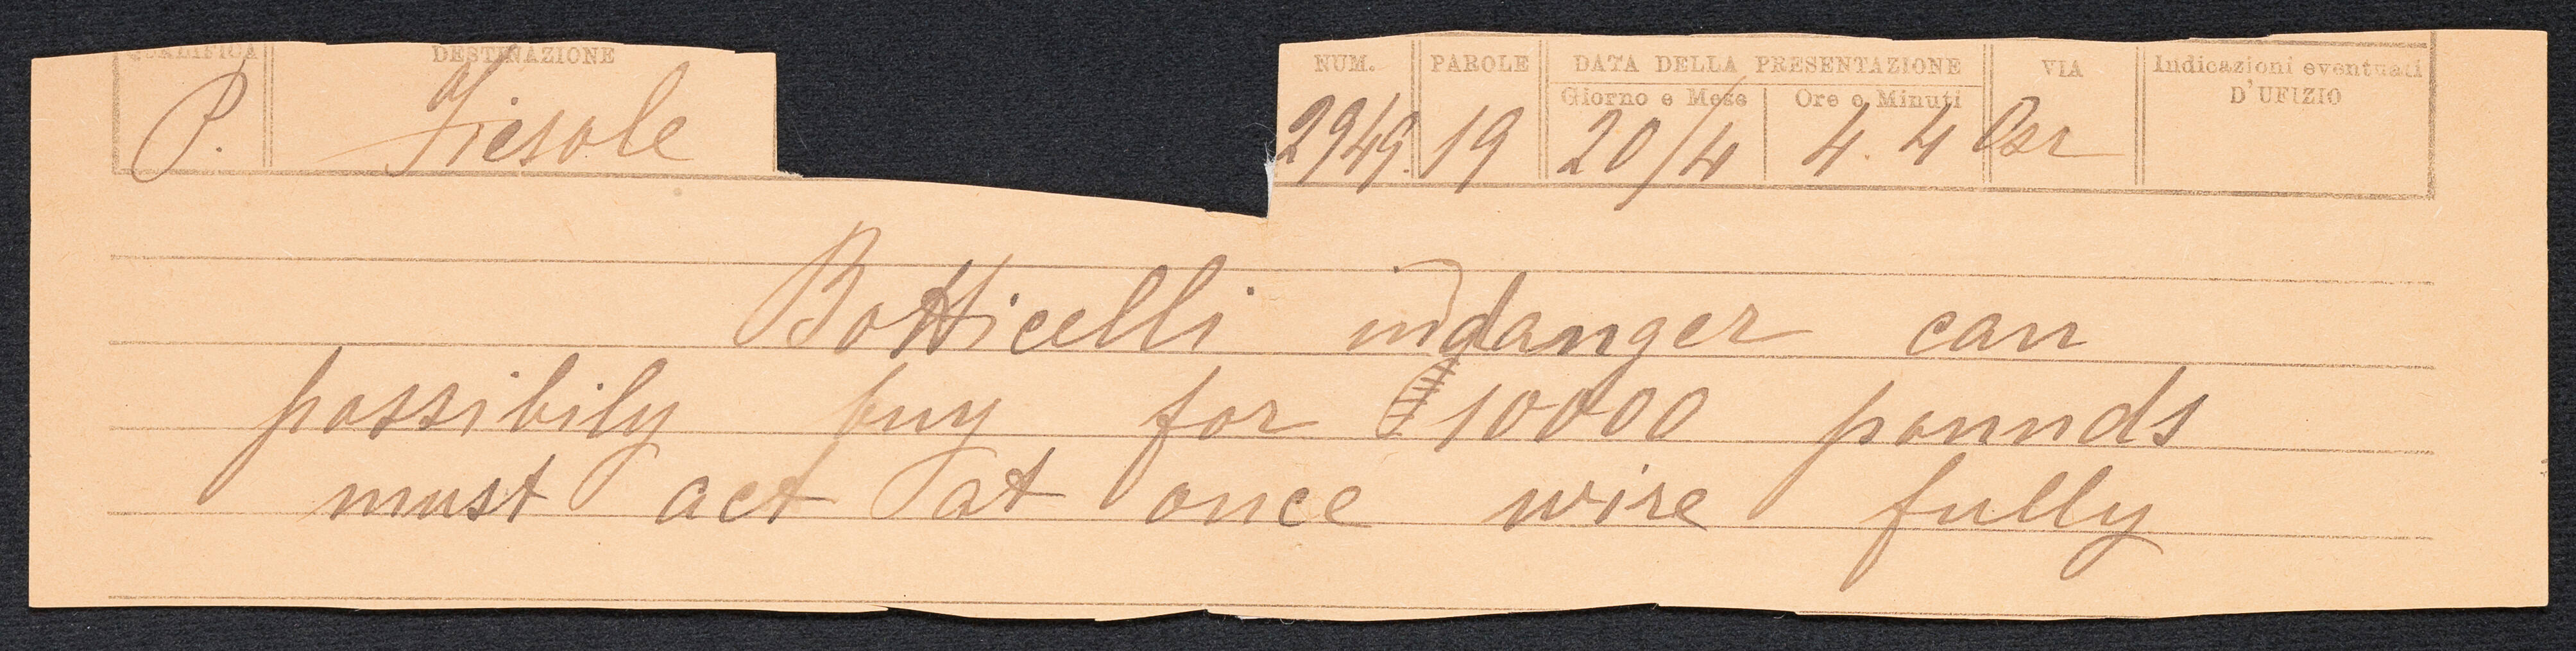 QUALIFICA DESTINAZIONE NUM. PAROLE DATA DELLA PRESENTAZIONE VIA Indicazioni eventuali
Giorno e Mese Ore e Minuti D'UFIZIO
P. Fiesole 2949. 19 20/4 4. 4
Botticelli in danger can
possibily buy for 10000 pounds
must act at once wire fully